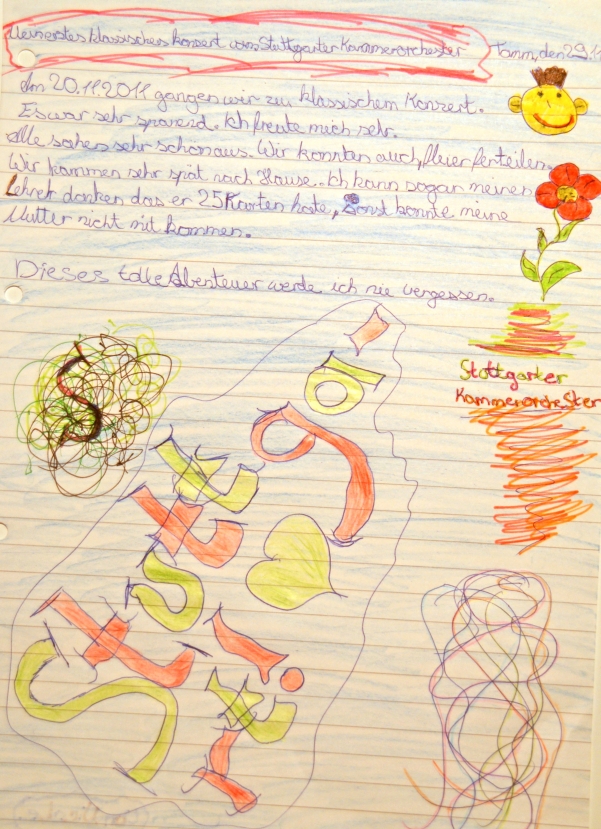 Mein erstes klassisches konzert vom Stuttgarter Kammerorchester
Tamm, den 29.11
Am 20.11.2011 gangen wir zu klassischem Konzert.
Es war sehr spanend. Ich freute mich sehr.
Alle sahen sehr schön aus. Wir konnten auch fleier ferteilen.
Wir kammen sehr spät nach Hause. Ich kann sogar meinen
Lehrer danken das er 25 Karten hate, Sonst konnte meine
Mutter nicht mit kommen.
Dieses tolle Abenteuer werde ich nie vergessen.
Stottgarter
Kammerorchester